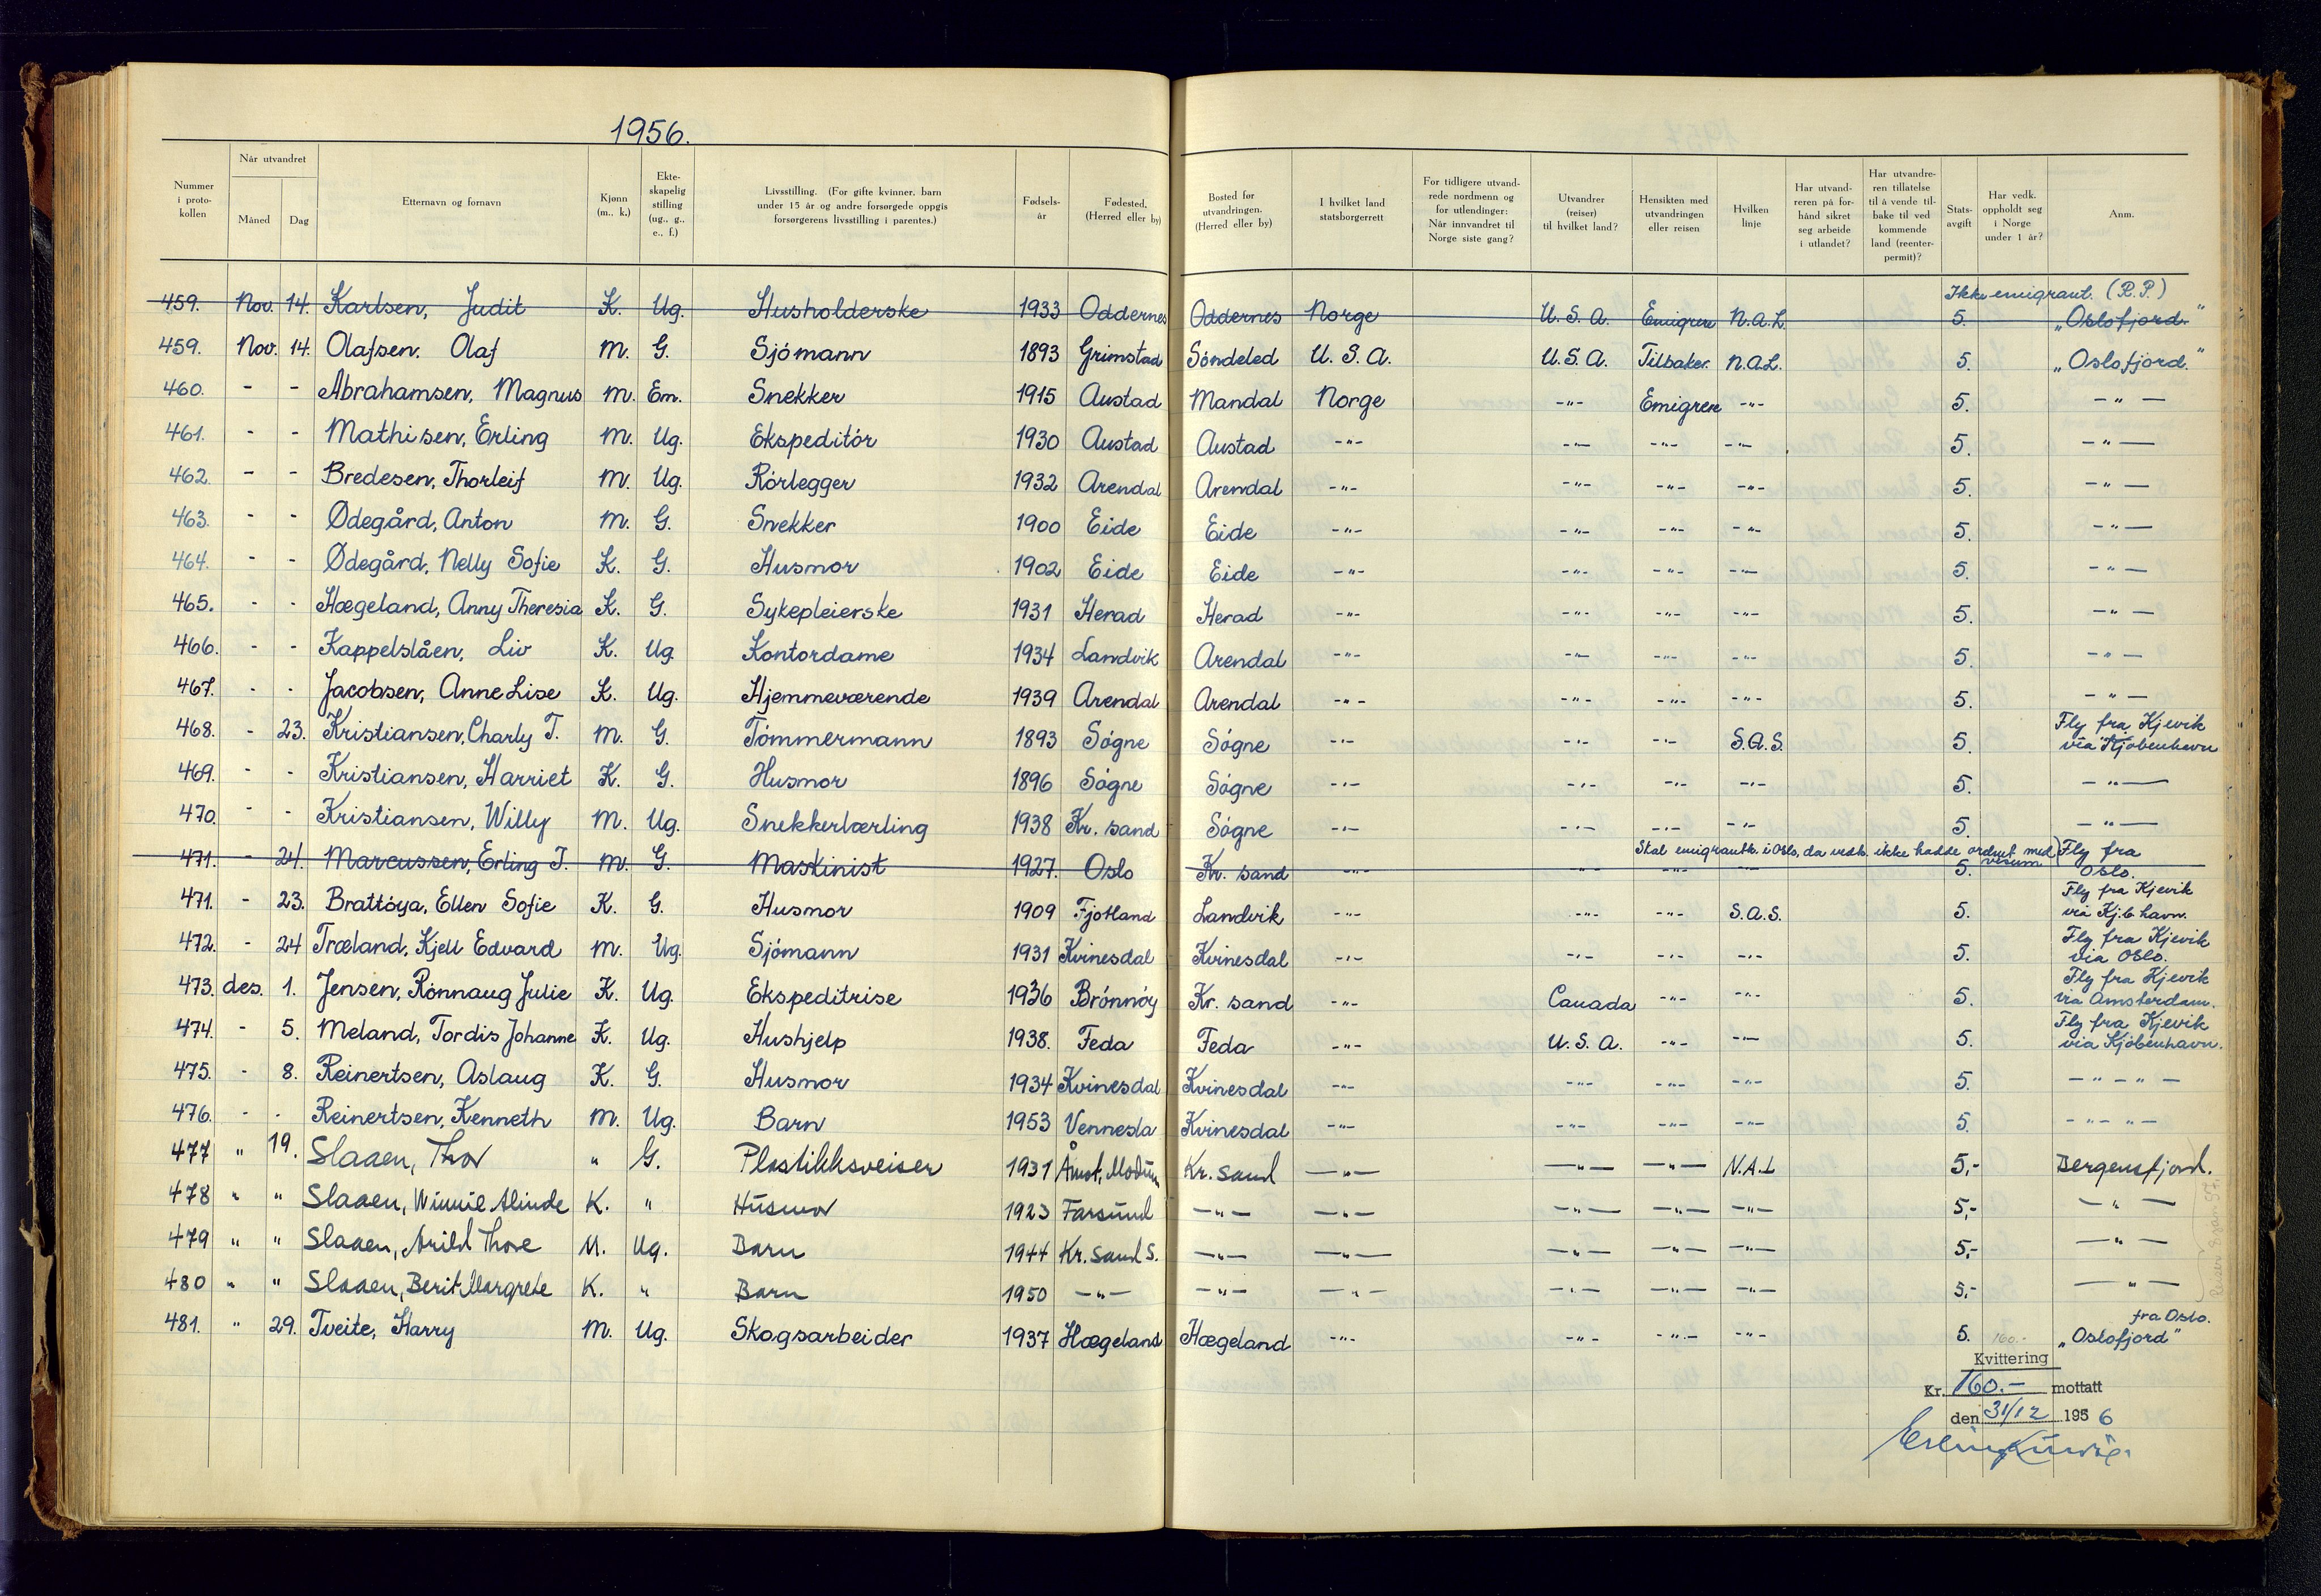 1956.
Nummer i proto-kollen | Når utvandret Måned | Dag | Etternavn og fornavn | Kjønn (m., k.) | Ekte-skapelig stilling (ug., g., e., f.) | Livsstilling. (For gifte kvinner, barn under 15 år og andre forsørgede oppgis forsørgerens livsstilling i parentes.) | Fødsels-år | Fødested. (Herred eller by) | Bosted før utvandringen. (Herred eller by) | I hvilket land statsborgerrett | For tidligere utvand-rede nordmenn og for utlendinger: Når innvandret til Norge siste gang? | Utvandrer (reiser) til hvilket land? | Hensikten med utvandringen eller reisen | Hvilken linje | Har utvand-reren på for-hånd sikret seg arbeide i utlandet? | Har utvandre-ren tillatelse til å vende til-bake til ved kommende land (reenter-permit)? | Stats-avgift | Har vedk. oppholdt seg i Norge under 1 år? | Anm.
459. Nov. 14. Karlsen, Judit K. Ug. Husholderske 1933 Oddernes Oddernes Norge U.S.A. Emigrere N.A.L. 5. Ikke emigrant. (R.P.) „Oslofjord."
459. Nov. 14. Olafsen. Olaf M. G. Sjómann 1893 Grimstad Sóndeled U.S.A. U.S.A. Tilbaker. N.A.L. 5. „Oslofjord."
460. - - Abrahamsen, Magnus M. Em. Snekker 1915 Austad Mandal Norge -"- Emigrere -"- 5. -"-
461. - - Mathisen, Erling M. Ug. Ekspeditór 1930 Austad Austad -"- -"- -"- -"- 5. -"-
462. - - Bredesen, Thorleif M. Ug. Rórlegger 1932 Arendal Arendal -"- -"- -"- -"- 5. -"-
463. - - Ødegård, Anton M. G. Snekker 1900 Eide Eide -"- -"- -"- -"- 5. -"-
464. - - Ødegård, Nelly Sofie K. G. Husmor 1902 Eide Eide -"- -"- -"- -"- 5. -"-
465. - - Hægeland, Anny Theresia K. G. Sykepleierske 1931 Herad Herad -"- -"- -"- -"- 5. -"-
466. - - Kappelslåen, Liv K. Ug. Kontordame 1934 Landvik Arendal -"- -"- -"- -"- 5. -"-
467. - - Jacobsen, Anne Lise K. Ug. Hjemmeværende 1939 Arendal Arendal -"- -"- -"- -"- 5. -"-
468. - 23. Kristiansen, Charly T. M. G. Tómmermann 1893 Sógne Sógne -"- -"- -"- S.A.S. 5. Fly fra Kjevik via Kjóbenhavn
469. - - Kristiansen, Harriet K. G. Husmor 1896 Sógne Sógne -"- -"- -"- -"- 5. -"-
470. - - Kristiansen, Willy M. Ug. Snekkerlærling 1938 Kr. sand Sógne -"- -"- -"- -"- 5. -"-
471. - 24. Marcussen, Erling J. M. G. Maskinist 1927. Oslo Kr. sand -"- -"- -"- -"- 5. Skal emigrantk. i Oslo, da vedk. ikke hadde ordnet med visum Fly fra Oslo.
471. - 23. Brattóya, Ellen Sofie K. G. Husmor 1909 Fjotland Landvik -"- -"- -"- S.A.S. 5. Fly fra Kjevik via Kj.b.havn.
472. - 24 Træland, Kjell Edvard M. Ug. Sjómann 1931 Kvinesdal Kvinesdal -"- -"- -"- -"- 5. Fly fra Kjevik via Oslo.
473. des. 1. Jensen, Rónnaug Julie K. Ug. Ekspeditrise 1936 Brónnóy Kr. sand -"- Canada -"- -"- 5. Fly fra Kjevik via Amsterdam.
474. - 5. Meland, Tordis Johanne K. Ug. Hushjelp 1938. Feda Feda -"- U.S.A. -"- -"- 5. Fly fra Kjevik via Kjóbenhavn.
475. - 8. Reinertsen, Aslaug K. G. Husmor 1934 Kvinesdal Kvinesdal -"- -"- -"- -"- 5. -"-"-
476. - - Reinertsen, Kenneth M. Ug. Barn 1953 Vennesla Kvinesdal -"- -"- -"- -"- 5. -"-"-
477 " 19. Slaaen, Thor " G. Plastikksveiser 1931 Åmot, Modum Kr. sand -"- -"- -"- N.A.L 5,- Bergensfjord.
478 " " Slaaen, Winnie Alinde K. " Husmor 1923 Farsund -"- -"- -"- -"- -"- 5,- -"-
479 " " Slaaen, Arild Thore M. Ug. Barn 1944 Kr. sand S. -"- -"- -"- -"- -"- 5,- -"-
480 " " Slaaen, Berit Margrete K. " Barn 1950 -"- -"- -"- -"- -"- -"- 5,- -"-
481. " 29. Tveite, Harry M. Ug. Skogsarbeider 1937 Hægeland Hægeland -"- -"- -"- -"- 5. 160.- fra Oslo. „Oslofjord"
Kvittering
Kr. 160.- mottatt
den 31/12 1956